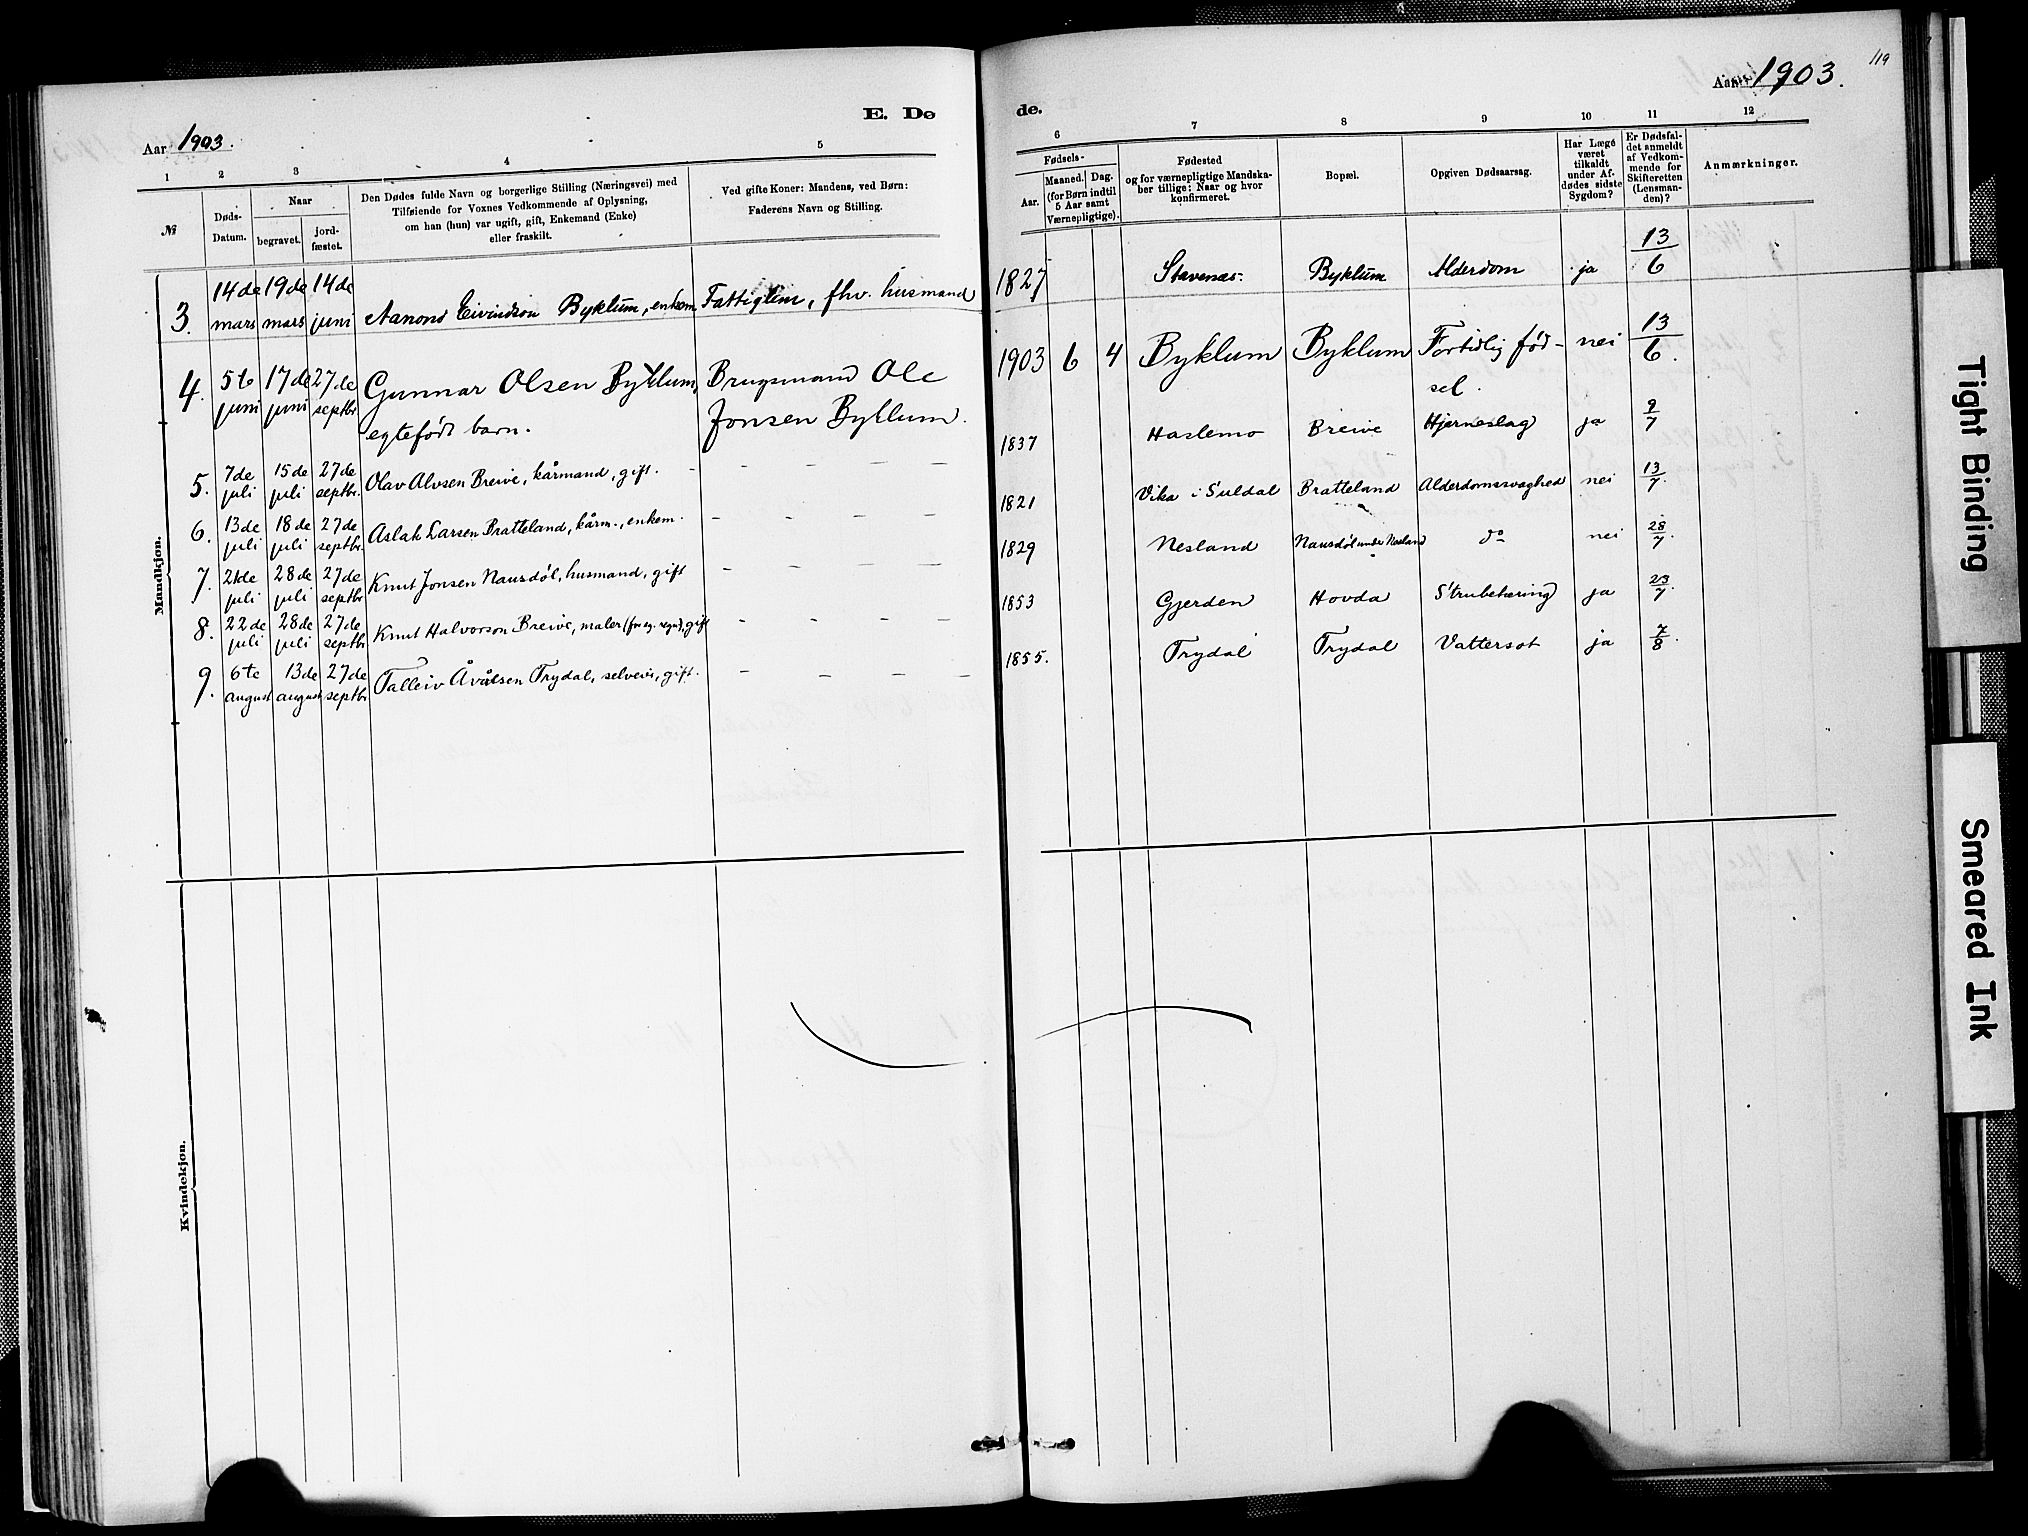 119
Aar 1903.
E. Dø
de.
Aar 1903.
1 2 3 4 5
6 7 8 9 10 11 12
№
Døds-
Datum.
Naar
begravet.
jord-
fæstet.
Den Dødes fulde Navn og borgerlige Stilling (Næringsvei) med
Tilføiende for Voxnes Vedkommende af Oplysning,
om han (hun) var ugift, gift, Enkemand (Enke)
eller fraskilt.
Ved gifte Koner: Mandens, ved Børn:
Faderens Navn og Stilling.
Fødsels-
Aar.
Maaned. Dag.
(for Børn indtil
5 Aar samt
Værnepligtige).
Fødested
og for værnepligtige Mandska-
ber tillige: Naar og hvor
konfirmeret.
Bopæl.
Opgiven Dødsaarsag.
Har Læge
været
tilkaldt
under Af-
dødes sidste
Sygdom?
Er Dødsfal-
det anmeldt
af Vedkom-
mende for
Skifteretten
(Lensman-
den)?
Anmærkninger.
Mandkjøn.
3. 14de mars 19de mars 14de juni Aanond Eivindson Byklum, enkem. Fattiglem, fhv. husmand 1827 Stavenæs. Byklum Alderdom ja 13/6
4. 5te juni 17de juni 27de septbr Gunnar Olsen Byklum, egtefødt barn. Brugsmand Ole Jonsen Byklum. 1903 6 4 Byklum Byklum Fortidlig fød-sel. nei 13/6.
5. 7de juli 15de juli 27de septbr. Olav Alvsen Breive, kårmand, gift. – – – – – 1837 Haslemo Breive Hjerneslag ja 9/7
6. 13de juli 18de juli 27de septbr. Aslak Larsen Bratteland, kårm., enkem. – – – – 1821 Vika i Suldal Bratteland Alderdomssvaghed nei 13/7.
7. 21de juli 28de juli 27de septbr. Knut Jonsen Nausdøl, husmand, gift – – – – 1829 Nesland Nausdøl under Nesland do nei 28/7.
8. 22de juli 28de juli 27de septbr. Knut Halvorson Breive, maler (for eg. regn.), gift – – – – 1853 Gjerden Hovda Strubetæring ja 23/7.
9. 6te august 13de august 27de septbr. Talleiv Åvålsen Trydal, selveier, gift. – – – – 1855. Trydal Trydal Vattersot ja 7/8.
Kvindekjøn.
Tight Binding
Smeared Ink